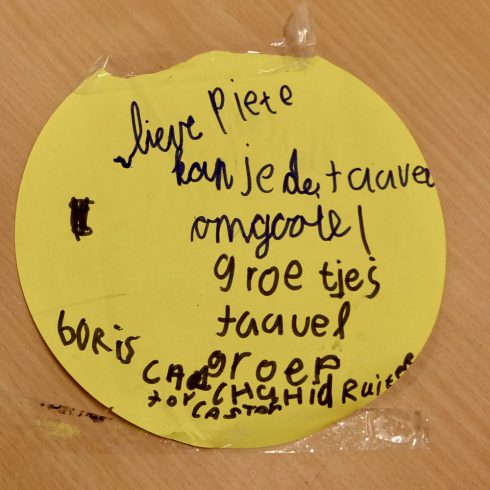 lieve Piete
kan je de taavel
omgoole!
groetjes
taavel
groep
boris
CHAHID Ruiter
CASTOR